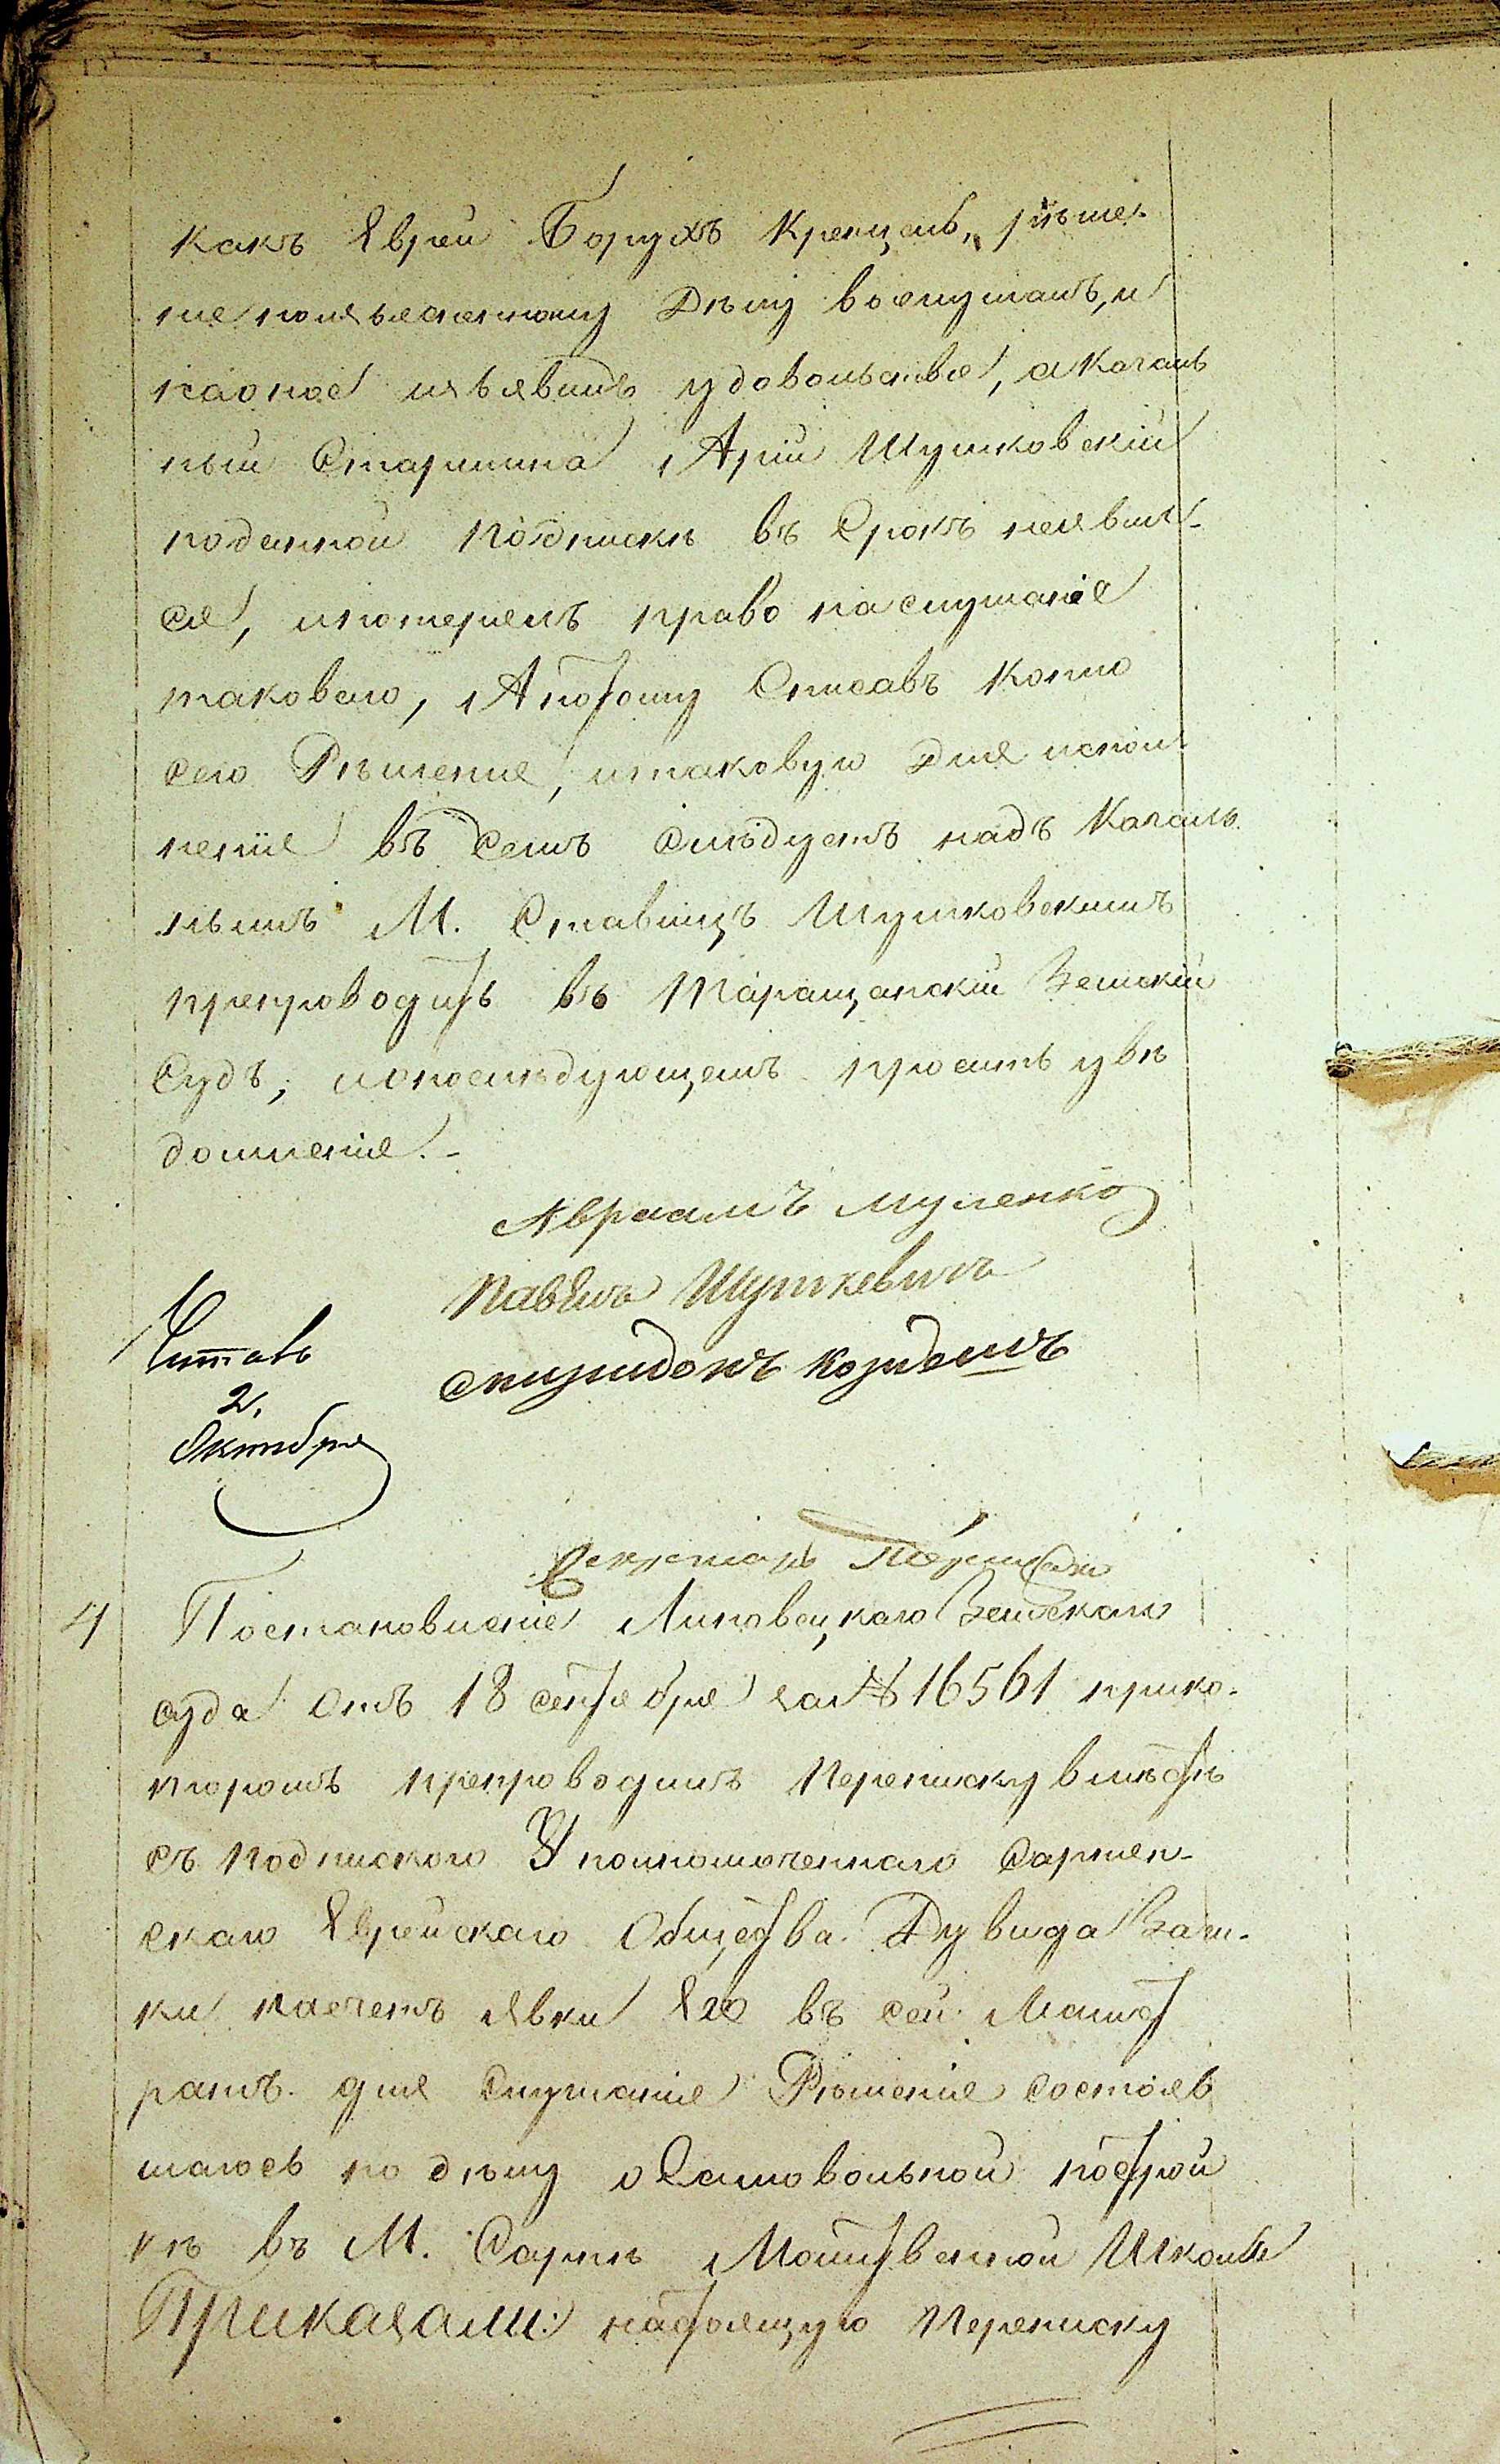 какъ Еврей Борухъ Кренцель, рѣше-
ніе поизъясненному Дѣлу вослушалъ, и
наоное изъявилъ удовольствіе, а Кагаль
ный Старшина Арій Шумковскій
поданной подпискѣ въ Срокъ неявил-
ся, ипотерялъ право наслушаніе
таковаго, Апотому Списавъ копію
сего Рѣшенія, итаковую Для испол-
ненія въ чемъ Слѣдуетъ надъ Кагаль-
нымъ М. Ставищъ Шумковскимъ
препроводить въ Таращанскій Земскій
Судъ, ипослѣдующемъ просить увѣ
домленія.-
Авраамъ
Павелъ Шушкевичъ
Спиридонъ
Читалъ
2.
Октября
Секретарь
4 Постановленіе Липовецкаго Земскаго
суда отъ 18 сентября за № 16561 прико-
торомъ препроводилъ Переписку вмѣстѣ
съ подпискою Уполномоченнаго Сарнен-
скаго Еврейскаго Общества Дувида Заш-
ки насчетъ явки Его въ сей Магист
ратъ для Слушанія Рѣшенія состояв
шагось по дѣлу о Самовольной построй
кѣ въ М. Сарнѣ Молитвенной Школы
Приказали: настоящую Переписку